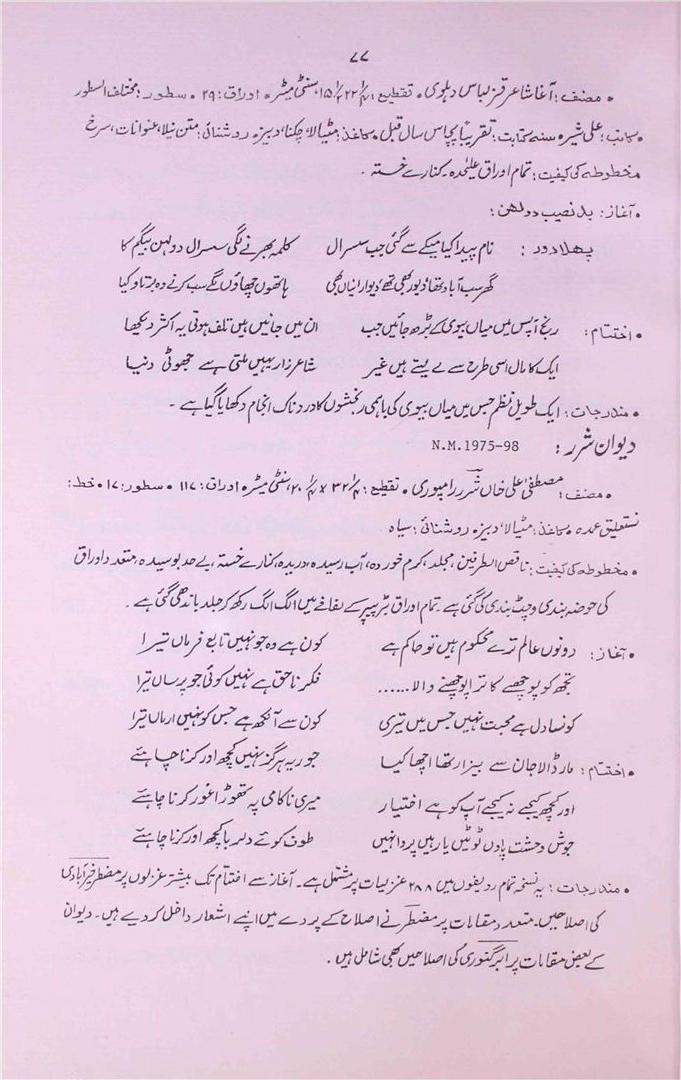 ۷۷
• مصنف: آغا شاعر قزلباش دہلوی • تقطیع: ۲۲ ۱۵ سنٹی میٹر • اوراق: ۲۹ • سطور: مختلف السطور
• کاتب: علی شیر • سنہ کتابت: تقریباً پچاس سال قبل • کاغذ: مٹیالا، چکنا، دبیز • روشنائی: متن نیلا، عنوانات، سرخ
مخطوطہ کی کیفیت: تمام اوراق علیحدہ۔ کنارے خستہ ۔
• آغاز: بدنصیب دولھن:
پہلا دور: نام پیدا کیا میکے سے گئی جب سسرال کلمہ بھرنے لگی سسرال دولہن بیگم کا
گھر سب آباد تھا دیور بھی تھے دیورانیاں بھی ہاتھوں چھاؤں گے سب کرنے وہ برتاو کیا
• اختتام: رنج آپس میں میاں بیوی کے بڑھ جائیں جب ان میں جانیں ہیں تلف ہوتی یہ اکثر دیکھا
ایک کا مال اسی طرح سے لے لیتے ہیں غیر شاعر زار یہیں ملتی ہے جھوٹی دنیا
• مندرجات: ایک طویل نظم جس میں میاں بیوی کی باہمی رنجشوں کا دردناک انجام دکھایا گیا ہے ۔
دیوان شرر: N.M.1975-98
• مصنف: مصطفیٰ علی خاں شرر رامپوری • تقطیع: ۳۲ x ۲۰ سنٹی میٹر • اوراق: ۱۱۷ • سطور: ۱۷ • خط:
نستعلیق عمدہ • کاغذ: مٹیالا، دبیز • روشنائی: سیاہ
• مخطوطہ کی کیفیت: ناقص الطرفین، مجلد، کرم خوردہ، آب رسیدہ، دریدہ، کنارے خستہ، بے حد بوسیدہ، متعدد اوراق
کی حوضہ بندی و چٹ بندی کی گئی ہے۔ تمام اوراق بٹر پیپر کے لفافے میں الگ الگ رکھ کر جلد باندھی گئی ہے ۔
• آغاز: دونوں عالم ترے محکوم ہیں تو حاکم ہے کون ہے وہ جو نہیں تابع فرماں تیرا
تجھ کو پوچھے کا ترا پوچھنے والا ...... فکر ناحق ہے نہیں کوئی جو پرساں تیرا
کونسا دل ہے محبت نہیں جس میں تیری کون سے آنکھ ہے جس کو نہیں ارماں تیرا
• اختتام: مار ڈالا جان سے بیزار تھا اچھا کیا جو ریہ ہرگز نہیں کچھ اور کرنا چاہئے
اور کچھ کیجے نہ کیجے آپ کو ہے اختیار میری ناکامی پہ تھوڑا غور کرنا چاہئے
جوش وحشت پاؤں ٹوٹیں یا رہیں پروا نہیں طوف کوئے دلربا کچھ اور کرنا چاہئے
• مندرجات: یہ نسخہ تمام ردیفوں میں ۲۸۸ غزلیات پر مشتمل ہے۔ آغاز سے اختتام تک بیشتر غزلوں پر مضطر خیرآبادی
کی اصلاحیں۔ متعدد مقامات پر مضطر نے اصلاح کے پردے میں اپنے اشعار داخل کر دیے ہیں۔ دیوان
کے بعض مقامات پر ابر گنوری کی اصلاحیں بھی شامل ہیں ۔